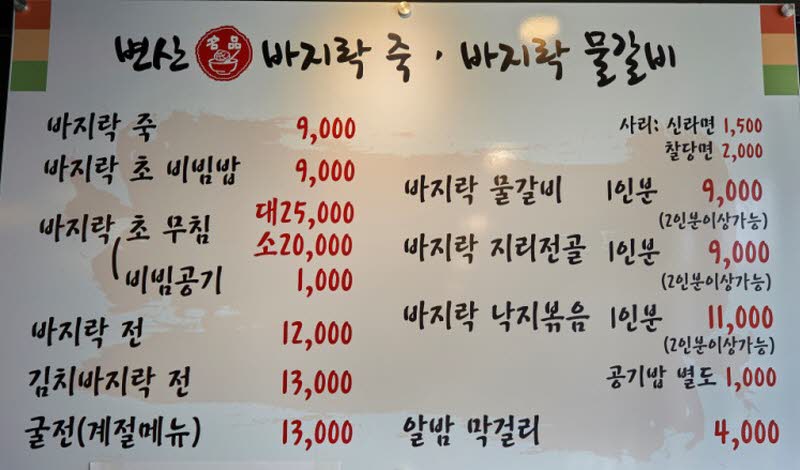 변산 名品 바지락 죽 · 바지락 물갈비
바지락 죽 9,000
바지락 초 비빔밥 9,000
바지락 초 무침 대25,000
소20,000
비빔공기 1,000
바지락 전 12,000
김치바지락 전 13,000
굴전(계절메뉴) 13,000
사리: 신라면 1,500
찰당면 2,000
바지락 물갈비 1인분 9,000
(2인분이상가능)
바지락 지리전골 1인분 9,000
(2인분이상가능)
바지락 낙지볶음 1인분 11,000
(2인분이상가능)
공기밥 별도 1,000
알밤 막걸리 4,000